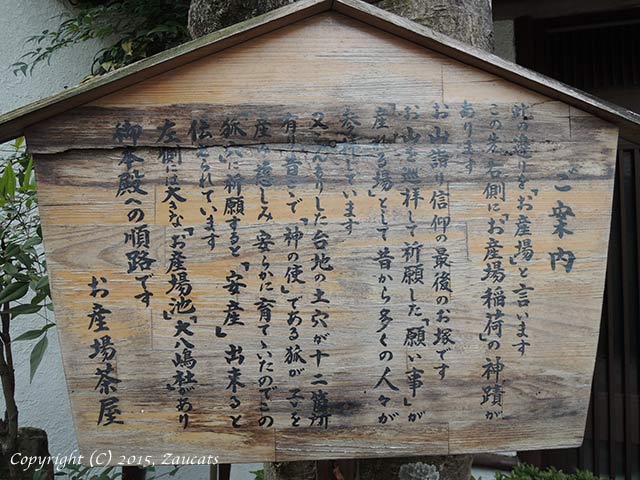 ご案内
此の辺りを「お産場」と言います
この左右側に「お産場稲荷」の神蹟が
あります
お山詣り信仰の最後のお塚です
お山を巡拝して祈願した「願い事」が
産れる場」として昔から多くの人々が
しています
こんもりした台地の土穴が十二箇所
有り昔ここで「神の使」である狐が子を
産み慈しみ安らかに育てゝいたのでこの
「狐穴」に祈願すると「安産」出来ると
伝されています
左側には大きな「お産場池」「大八嶋社」があり
御本殿への順路です
お産場茶屋
Copyright (C) 2015, Zaucats